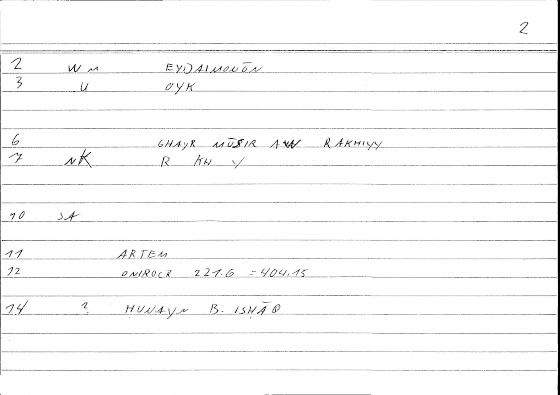 2
2 W M EYDAIMONŌN
3 U OYK
6 GHAYR MŪSIR AW RAKHIYY
7 NK R KH Y
10 SA
11 ARTEM
12 ONIROCR 221.6 = 404.15
14 ? ḤUNAYN B. ISḤĀQ